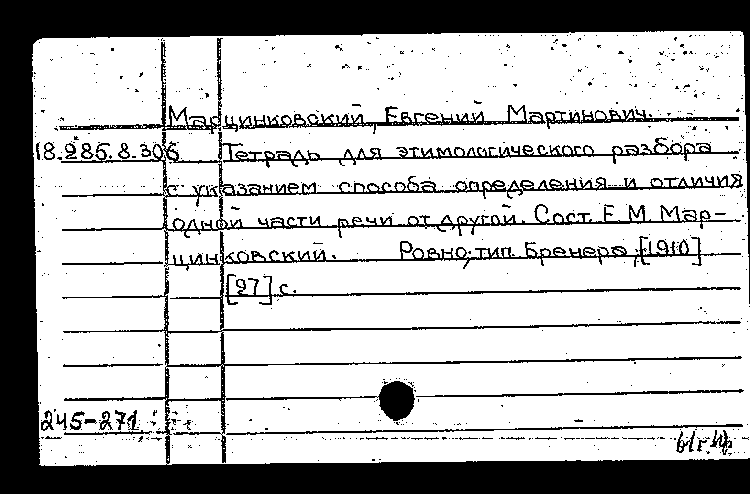 Марцинковский, Евгений Мартинович.
18.285.8.306 Тетрадь для этимологического разбора
с указанием способа определения и отличия
одной части речи от другой. Сост. Е. М. Мар-
цинковский. Ровно, тип. Бренера, [1910]
[27] с.
245-271